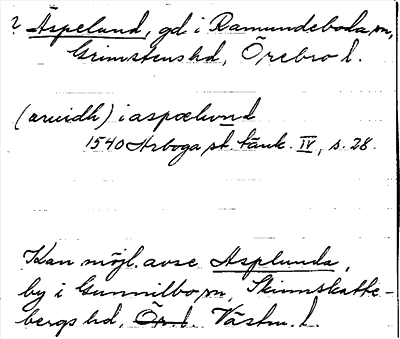 ? Äspelund, gd i Ramundeboda sn,
Grimstens hd, Örebro l.
(arwidh) i aspælwnd
1540 Arboga st. tänk. IV, s. 28.
Kan möjl. avse Asplunda,
by i Gunnilbo sn, Skinnskatte-
bergs hd, Ör. l. Västm. l.